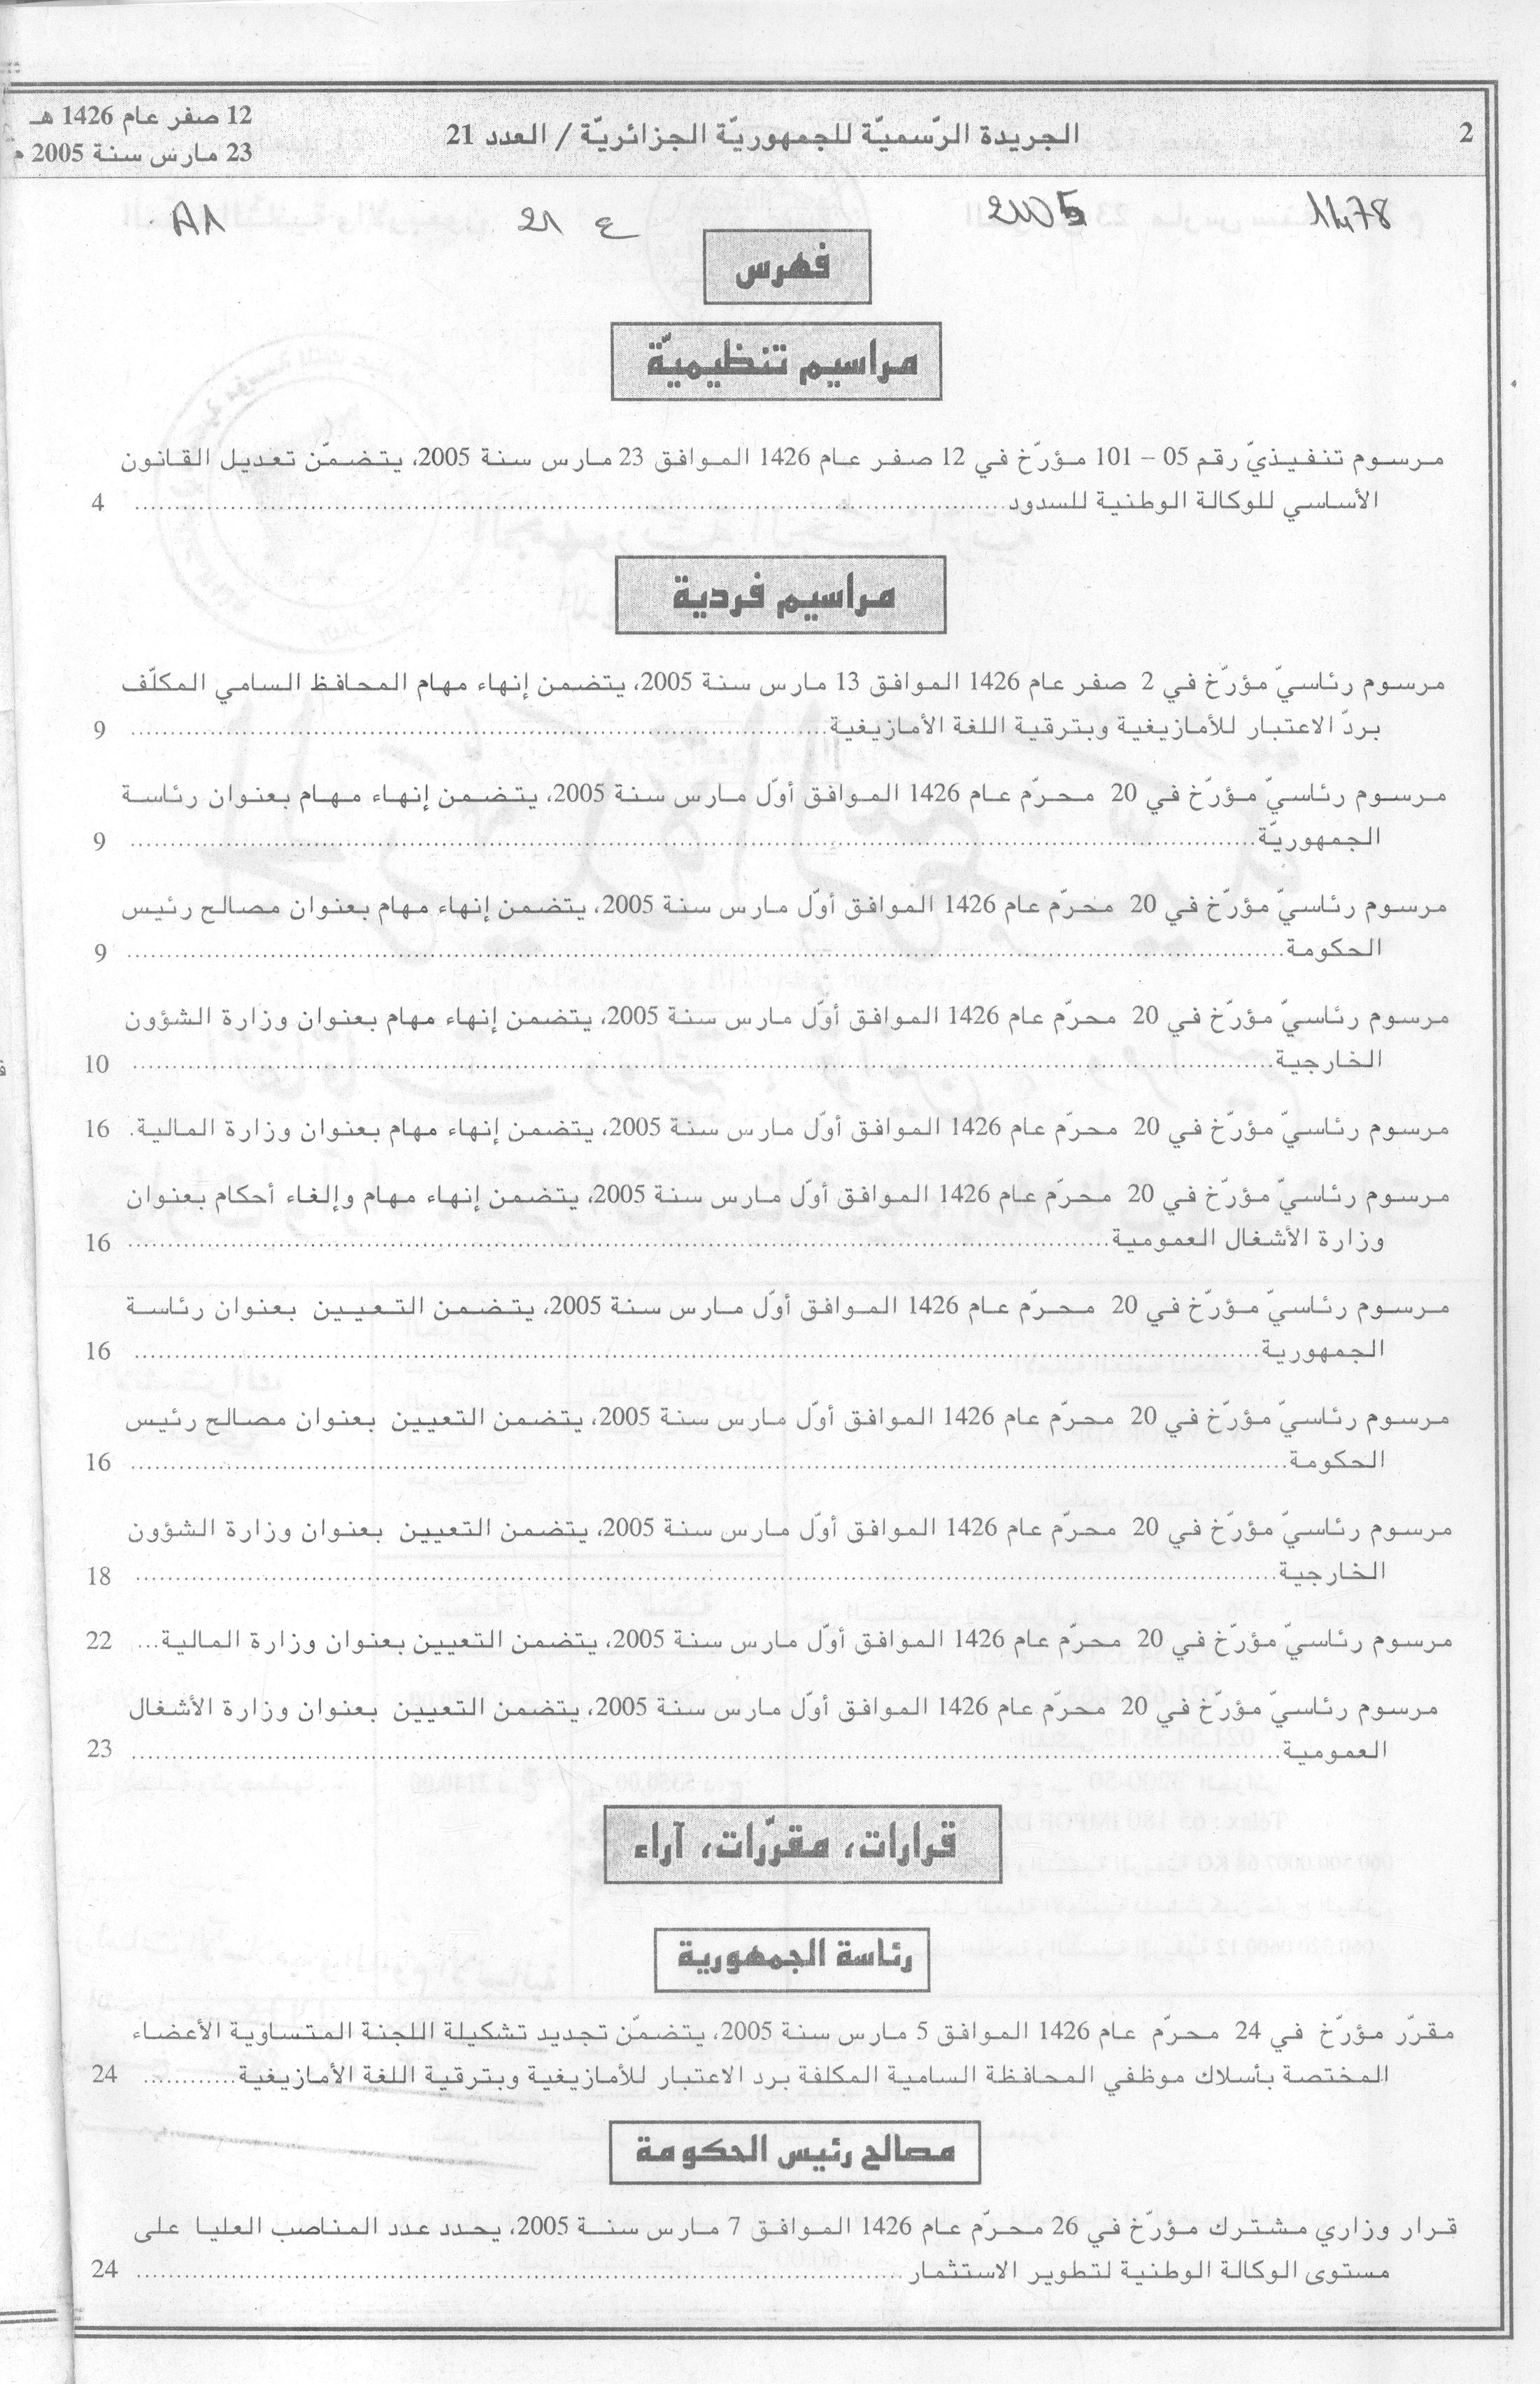 2
الجريدة الرّسميّة للجمهوريّة الجزائريّة / العدد 21
12 صفر عام 1426 هـ
23 مارس سنة 2005 م
11478 2005 ع 21 A1
فهرس
مراسيم تنظيميّة
مرسوم تنفيذيّ رقم 05 – 101 مؤرّخ في 12 صفر عام 1426 الموافق 23 مارس سنة 2005، يتضمّن تعديل القانون
الأساسي للوكالة الوطنية للسدود........................................ 4
مراسيم فردية
مرسوم رئاسيّ مؤرّخ في 2 صفر عام 1426 الموافق 13 مارس سنة 2005، يتضمن إنهاء مهام المحافظ السامي المكلّف
بردّ الاعتبار للأمازيغية وبترقية اللغة الأمازيغية........................................ 9
مرسوم رئاسيّ مؤرّخ في 20 محرّم عام 1426 الموافق أوّل مارس سنة 2005، يتضمن إنهاء مهام بعنوان رئاسة
الجمهوريّة........................................ 9
مرسوم رئاسيّ مؤرّخ في 20 محرّم عام 1426 الموافق أوّل مارس سنة 2005، يتضمن إنهاء مهام بعنوان مصالح رئيس
الحكومة........................................ 9
مرسوم رئاسيّ مؤرّخ في 20 محرّم عام 1426 الموافق أوّل مارس سنة 2005، يتضمن إنهاء مهام بعنوان وزارة الشؤون
الخارجية........................................ 10
مرسوم رئاسيّ مؤرّخ في 20 محرّم عام 1426 الموافق أوّل مارس سنة 2005، يتضمن إنهاء مهام بعنوان وزارة المالية. 16
مرسوم رئاسيّ مؤرّخ في 20 محرّم عام 1426 الموافق أوّل مارس سنة 2005، يتضمن إنهاء مهام وإلغاء أحكام بعنوان
وزارة الأشغال العمومية........................................ 16
مرسوم رئاسيّ مؤرّخ في 20 محرّم عام 1426 الموافق أوّل مارس سنة 2005، يتضمن التعيين بعنوان رئاسة
الجمهورية........................................ 16
مرسوم رئاسيّ مؤرّخ في 20 محرّم عام 1426 الموافق أوّل مارس سنة 2005، يتضمن التعيين بعنوان مصالح رئيس
الحكومة........................................ 16
مرسوم رئاسيّ مؤرّخ في 20 محرّم عام 1426 الموافق أوّل مارس سنة 2005، يتضمن التعيين بعنوان وزارة الشؤون
الخارجية........................................ 18
مرسوم رئاسيّ مؤرّخ في 20 محرّم عام 1426 الموافق أوّل مارس سنة 2005، يتضمن التعيين بعنوان وزارة المالية... 22
مرسوم رئاسيّ مؤرّخ في 20 محرّم عام 1426 الموافق أوّل مارس سنة 2005، يتضمن التعيين بعنوان وزارة الأشغال
العمومية........................................ 23
قرارات، مقرّرات، آراء
رئاسة الجمهورية
مقرّر مؤرّخ في 24 محرّم عام 1426 الموافق 5 مارس سنة 2005، يتضمّن تجديد تشكيلة اللجنة المتساوية الأعضاء
المختصة بأسلاك موظفي المحافظة السامية المكلفة برد الاعتبار للأمازيغية وبترقية اللغة الأمازيغية............ 24
مصالح رئيس الحكومة
قرار وزاري مشترك مؤرّخ في 26 محرّم عام 1426 الموافق 7 مارس سنة 2005، يحدد عدد المناصب العليا على
مستوى الوكالة الوطنية لتطوير الاستثمار ........................................ 24